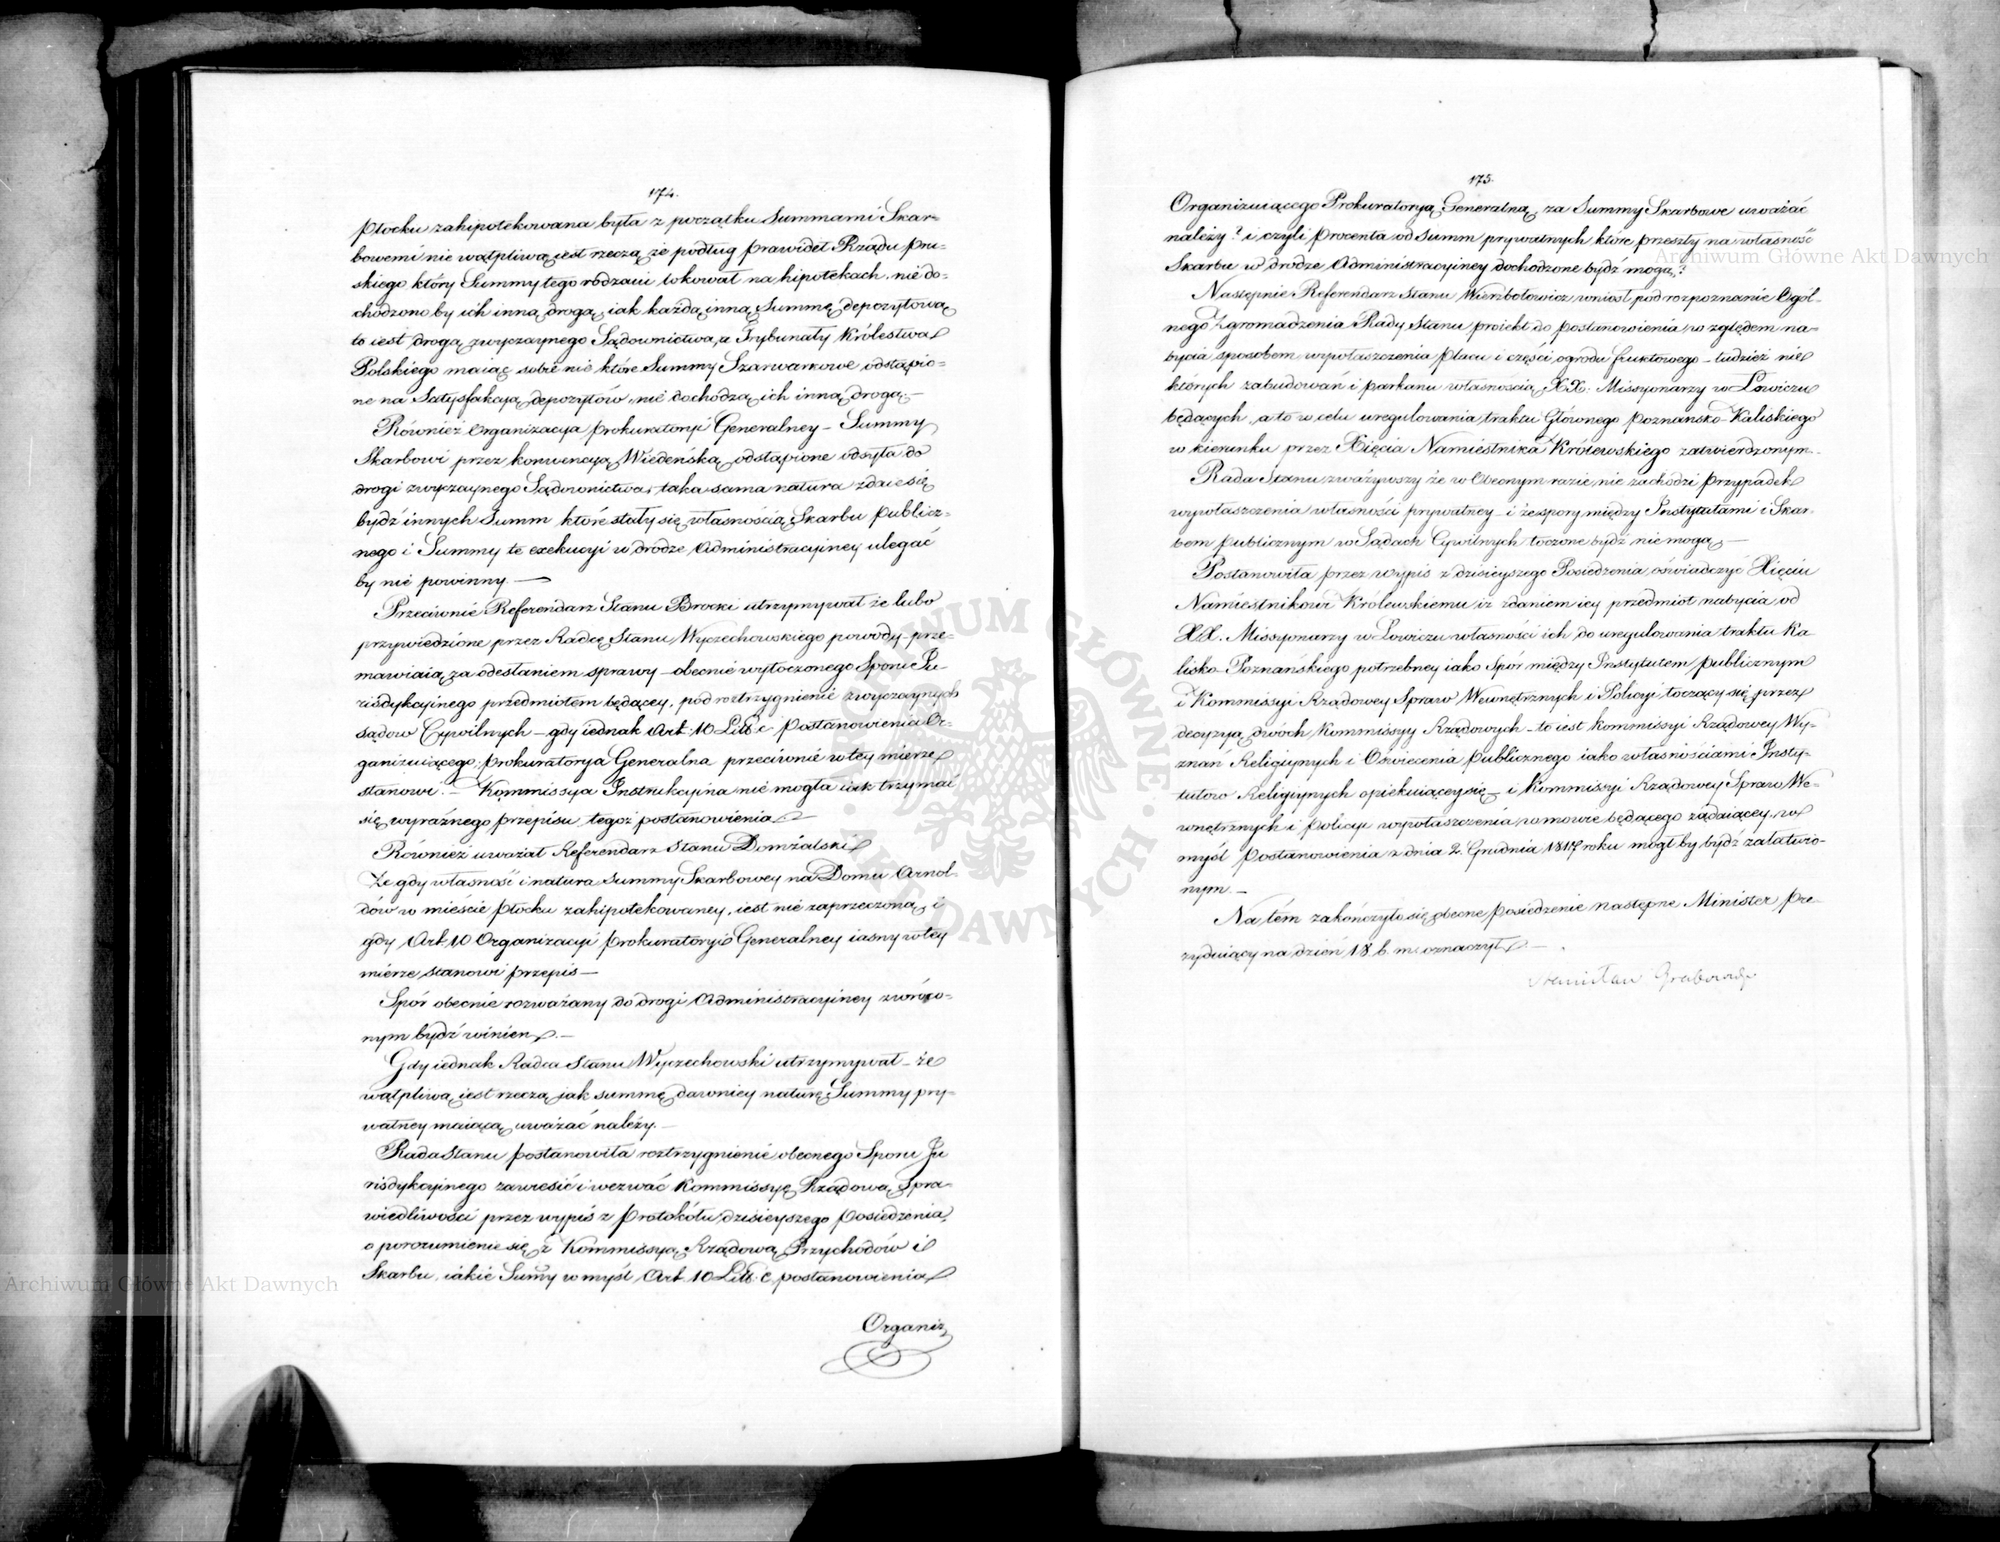 174.
Płocku zahipotekowana była z początku Summami Skar-
bowemi nie wątpliwą iest rzeczą że podług prawideł Rządu pru-
skiego który Summy tego rodzaiu lokował na hipotekach, nie do-
chodzonoby ich inną drogą, iak każdą inną Summę depozytową
to iest drogą zwyczaynego Sądownictwa, a Trybunały Królestwa
Polskiego maiąc sobie nie które Summy Szarwarkowe odstąpio-
ne na Satysfakcyą depozytów, nie dochodzą ich inną drogą.—
Również Organizacya Prokuratoryi Generalney — Summy
Skarbowi przez konwencyą Wiedeńską odstąpione odsyła do
drogi zwyczaynego Sądownictwa, taka sama natura zdaie się
bydź innych Summ które stały się własnością Skarbu Publicz-
nego i Summy te exekucyi w drodze Administracyiney ulegać
by nie powinny.—
Przeciwnie Referendarz Stanu Brocki utrzymywał że lubo
przywiedzione przez Radcę Stanu Wyczechowskiego powody prze-
mawiaią za odesłaniem sprawy — obecnie wytoczonego Sporu Ju-
risdykcyinego przedmiotem będącey, pod roztrzygnienie zwyczaynych
sądów Cywilnych — gdy iednak Art. 10 Litt. c Postanowienia Or-
ganizuiącego Prokuratorya Generalna przeciwnie w tey mierze
stanowi.— Kommissya Instrukcyina nie mogła iak trzymać
się wyraźnego przepisu tegoż postanowienia.—
Również uważał Referendarz Stanu Domżalski
Że gdy własność i natura Summy Skarbowey na Domu Arnol-
dów w mieście Płocku zahipotekowaney, iest nie zaprzeczoną i
gdy Art. 10 Organizacyi Prokuratoryi Generalney iasny w tey
mierze stanowi przepis—
Spór obecnie rozważany do drogi Administracyiney zwróco-
nym bydź winien.—
Gdy iednak Radca Stanu Wyczechowski utrzymywał — że
wątpliwą iest rzeczą jak summę dawniey naturę Summy pry-
watney maiącą uważać należy.—
Rada Stanu postanowiła roztrzygnienie obecnego Sporu Ju
risdykcyinego zawiesić i wezwać Kommissyę Rządową Spra-
wiedliwości przez wypis z Protokółu dzisieyszego Posiedzenia,
o porozumienie się z Kommissyą Rządową Przychodów i
Skarbu, iakie Sum̄y w myśl Art. 10 Litt. c. postanowienia
Organiz
175.
Organizuiącego Prokuratoryą Generalną za Summy Skarbowe uważać
należy? i czyli Procenta od Summ prywatnych które przeszły na własność
Skarbu w drodze Administracyiney dochodzone bydź mogą?
Następnie Referendarz Stanu Wierzbołowicz wniósł pod rozpoznanie Ogól-
nego Zgromadzenia Rady Stanu proiekt do postanowienia względem na-
bycia sposobem wywłaszczenia placu i części ogrodu fruktowego — tudzież nie
których zabudowań i parkanu własnością XX. Missyonarzy w Łowiczu
będących, a to w celu uregulowania traktu Głównego Poznańsko-Kaliskiego
w kierunku przez Xięcia Namiestnika Królewskiego zatwierdzonym.—
Rada Stanu zważywszy że w Obecnym razie nie zachodzi przypadek
wywłaszczenia własności prywatney — i że spory między Instytutami i Skar-
bem publicznym w Sądach Cywilnych toczone bydź nie mogą.—
Postanowiła przez wypis z dzisieyszego Posiedzenia, oświadczyć Xięciu
Namiestnikowi Królewskiemu iż zdaniem iey przedmiot nabycia od
XX. Missyonarzy w Łowiczu własności ich do uregulowania traktu Ka-
lisko-Poznańskiego potrzebney iako Spór między Instytutem publicznym
i Kommissyi Rządowey Spraw Wewnętrznych i Policyi toczący się przez
decyzyą dwóch Kommissyy Rządowych — to iest Kommissyi Rządowey Wy-
znań Religiynych i Oświecenia Publicznego iako własnościami Insty-
tutow Religiynych opiekuiącey się — i Kommissyi Rządowey Spraw We-
wnętrznych i Policyi wywłaszczenia w mowie będącego żądaiącey, w
myśl Postanowienia z dnia 2. Grudnia 1817 roku mógł by bydź załatwio-
nym.—
Na tém zakończyło się obecne Posiedzenie następne Minister Pre-
zyduiący na dzień 18. b. m. oznaczył.—
Stanisław Grabowski
Archiwum Główne Akt Dawnych
Archiwum Główne Akt Dawnych
ARCHIWUM GŁÓWNE · AKT DAWNYCH ·